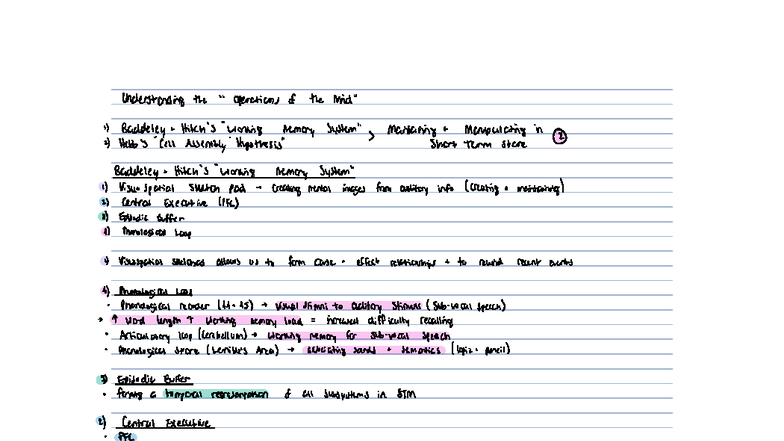 Understanding the "Operations of the Mind"
1) Baddeley + Hitch's "Working Memory System" > Maintaining + Manipulating in 2
2) Hebb's "Cell Assembly Hypothesis" Short Term Store
Baddeley + Hitch's "Working Memory System"
1) Visuospatial Sketch Pad → Creating mental images from auditory info (creating + maintaining)
2) Central Executive (PFC)
3) Episodic Buffer
4) Phonological Loop
1) Visuospatial Sketchpad allows us to form cause + effect relationships + to rewind recent events
4) Phonological Loop
• Phonological recoder → Visual Stimuli to Auditory Stimulus (Sub-vocal speech)
→ ↑ Word length ↑ Working memory load = increased difficulty recalling
• Articulatory loop (Cerebellum) → Working memory for sub-vocal speech
• Phonological Store (Wernicke's Area) → sounds + semantics
3) Episodic Buffer
• forms a temporal representation of all subsystems in STM
2) Central Executive
• PFC